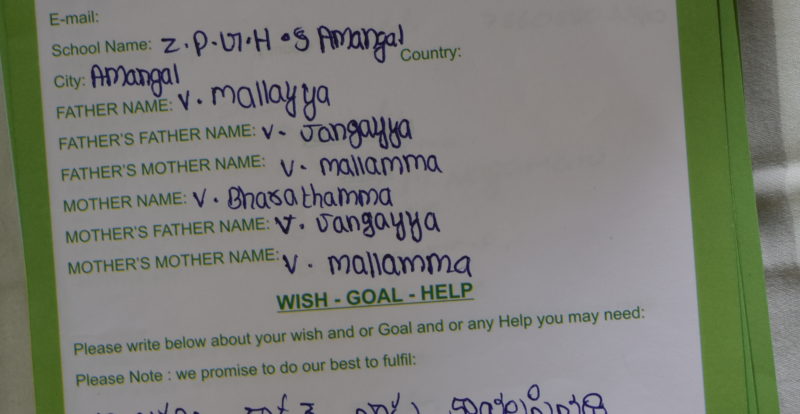 E-mail:
School Name: Z.P.U.H.S Amangal Country:
City: Amangal
FATHER NAME: V. mallayya
FATHER'S FATHER NAME: V. Jangayya
FATHER'S MOTHER NAME: V. mallamma
MOTHER NAME: V. Bharathamma
MOTHER'S FATHER NAME: V. Jangayya
MOTHER'S MOTHER NAME: V. mallamma
WISH - GOAL - HELP
Please write below about your wish and or Goal and or any Help you may need:
Please Note : we promise to do our best to fulfil: